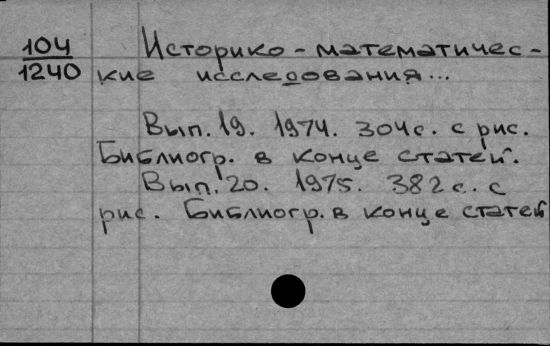 104
1240
Историко-математичес-
кие исследования...
Вып. 19. 1974. 304с. с рис.
Библиогр. в конце статей.
Вып. 20. 1975. 382 с. с
рис. Библиогр. в конце статей